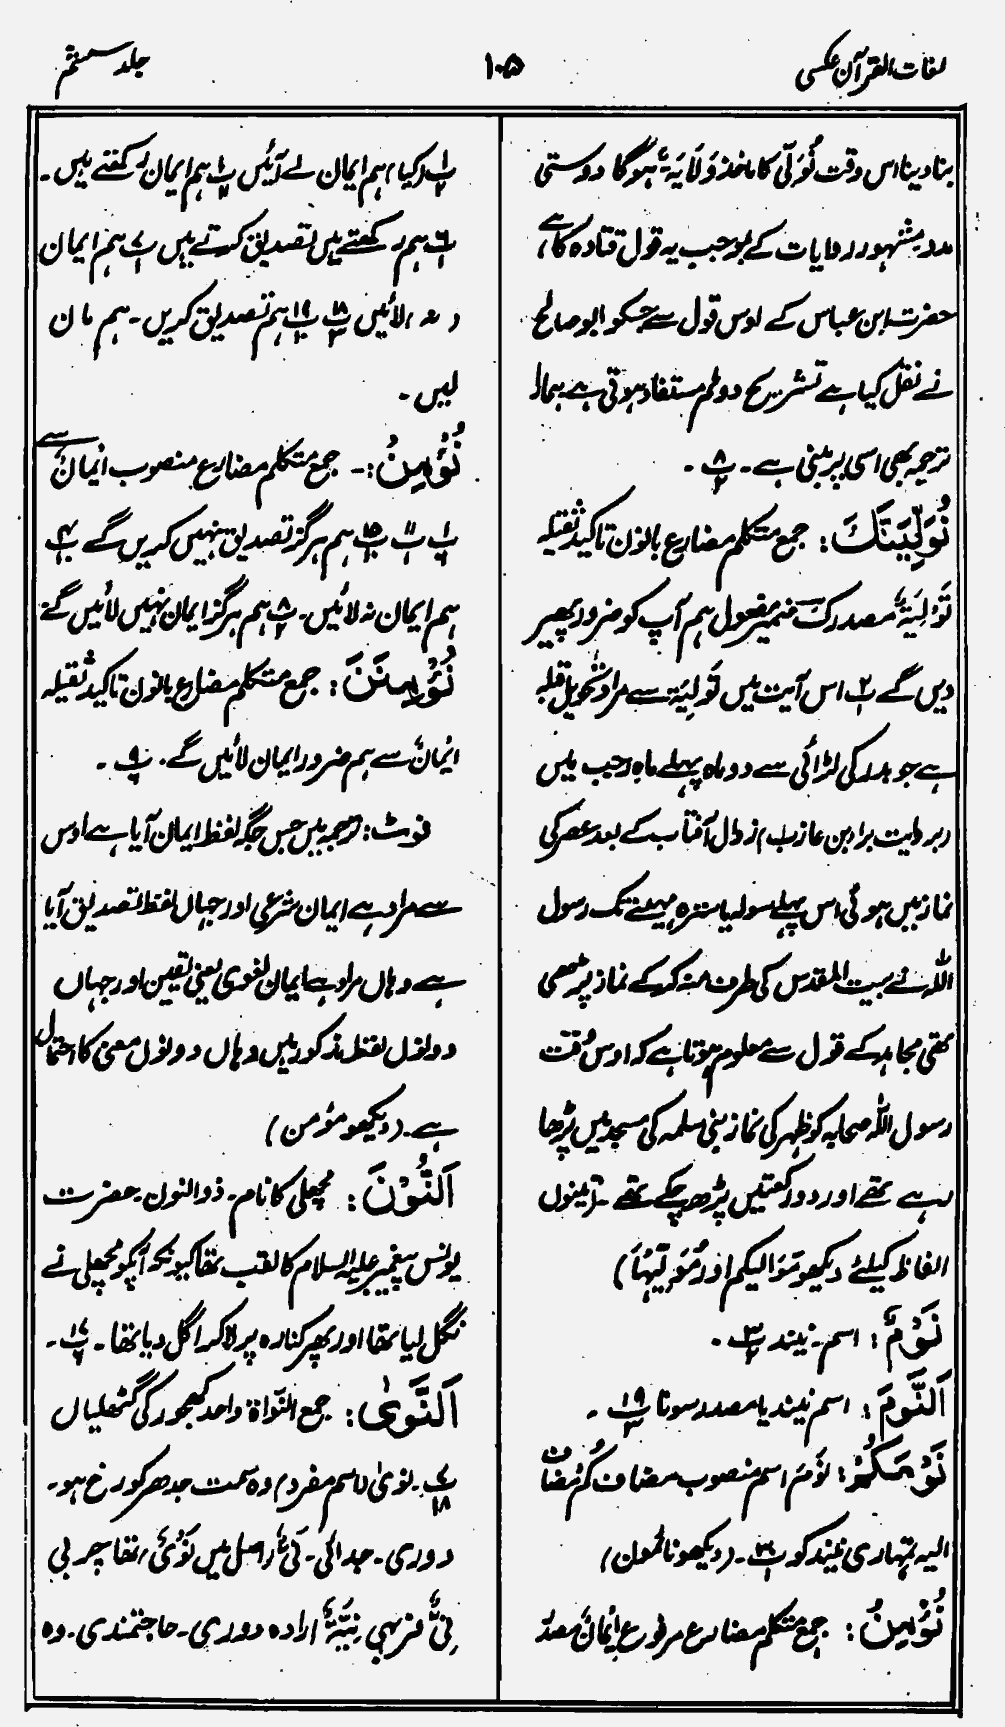 لغات القرآن عکسی
۱۰۵
جلد ششم
بنا دینا اس وقت نُوَلِّی کا ماخذ وَلَایَۃٌ ہوگا دوستی
مدد مشہور روایات کے بموجب یہ قول قتادہ کا ہے
حضرت ابن عباس کے اوس قول سے جسکو ابو صالح
نے نقل کیا ہے تشریح دوئم مستفاد ہوتی ہے ہمارا
ترجمہ بھی اسی پر مبنی ہے ۔ پ ۸ ۔
نُوَلِّیَنَّكَ : جمع متکلم مضارع بانون تاکید ثقیلہ
تَوْلِیَۃٌ مصدر ک ضمیر مفعول ہم آپ کو ضرور پھیر
دیں گے پ ۲ اس آیت میں تَوْلِیَۃ سے مراد تحویل قبلہ
ہے جو بدر کی لڑائی سے دو ماہ پہلے ماہ رجب میں
(بروایت براء بن عازب) زوال آفتاب کے بعد عصر کی
نماز میں ہوئی اس پہلے سولہ یا سترہ مہینے تک رسول
اللہ نے بیت المقدس کی طرف منہ کر کے نماز پڑھی
تھی مجاہد کے قول سے معلوم ہوتا ہے کہ اوس وقت
رسول اللہ صحابہ کو ظہر کی نماز بنی سلمہ کی مسجد میں پڑھا
رہے تھے اور دو رکعتیں پڑھ چکے تھے ۔ (تینوں
الفاظ کیلئے دیکھو مَوَالیکم اور مُوَلِّیْہَا)
نَوْمٌ : اسم ۔ نیند پ ۳ ۔
اَلنَّوْمَ : اسم نیند یا مصدر سونا پ ۱۹ ۔
نَوْمَكُمْ : نَوْمَ اسم منصوب مضاف كُمْ مُضاف
الیہ تمہاری نیند کو پ ۳۰ ۔ (دیکھو نائمون)
نُؤْمِنُ : جمع متکلم مضارع مرفوع اِیْمَانٌ مصدر
پ ۱ (کیا) ہم ایمان لے آئیں پ ۱ ہم ایمان رکھتے ہیں ۔
پ ۶ ہم رکھتے ہیں تصدیق کرتے ہیں پ ۷ ہم ایمان
(نہ) لائیں پ ۱۸ پ ۱۹ ہم تصدیق کریں ۔ ہم مان
لیں ۔
نُؤْمِنَ : ۔ جمع متکلم مضارع منصوب اِیْمَانٌ سے
پ ۱ پ ۱۱ پ ۱۵ ہم ہرگز تصدیق نہیں کریں گے پ ۴
ہم ایمان نہ لائیں ۔ پ ۸ ہم ہرگز ایمان نہیں لائیں گے
نُؤْمِنَنَّ : جمع متکلم مضارع بانون تاکید ثقیلہ
اِیْمَانٌ سے ہم ضرور ایمان لائیں گے ۔ پ ۹ ۔
نوٹ : ترجمہ میں جس جگہ لفظ ایمان آیا ہے اوس
سے مراد ہے ایمان شرعی اور جہاں لفظ تصدیق آیا
ہے وہاں مراد ہے ایمان لغوی یعنی یقین اور جہاں
دونوں لفظ مذکور ہیں وہاں دونوں معنی کا احتمال
ہے ۔ (دیکھو مؤمن)
اَلنُّوْنَ : مچھلی کا نام ۔ ذوالنون ۔ حضرت
یونس پیغمبر علیہ السلام کا لقب تھا کیونکہ آپکو مچھلی نے
نگل لیا تھا اور پھر کنارہ پر لا کر اگل دیا تھا ۔ پ ۱۷ ۔
اَلنَّوٰی : جمع النَّوَاۃ واحد کھجور کی گٹھلیاں
پ ۷ ۱۸ ۔ نَوٰی (اسم مفرد) وہ سمت جدھر کو رخ ہو ۔
دوری ۔ جدائی ۔ نَیٌّ (اصل میں نَوْیٌ) تھا چربی
نِیٌّ فربہی نِیَّۃٌ ارادہ دوری ۔ حاجتمندی ۔ وہ